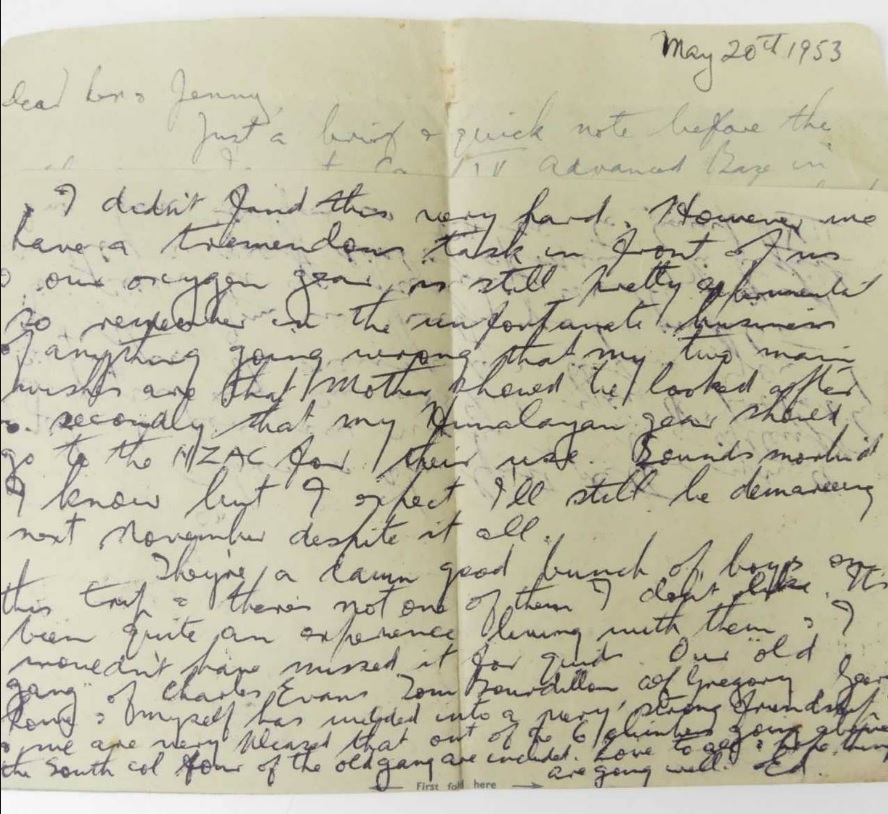 May 20TH 1953
Dear Len & Jenny,
Just a brief & quick note before the
IV Advanced Base in
I didn't find this very hard. However we
have a tremendous task in front of us
& our oxygen gear is still pretty
so remember in the unfortunate business
of anything going wrong that my two main
wishes are that Mother should be looked after
& secondly that my Himalayan gear should
go to the NZAC for their use. Sounds morbid
I know but I expect I'll still be
next November despite it all.
They're a damn good bunch of boys on
this trip & there's not one of them I don't like. It's
been quite an experience living with them & I
wouldn't have missed it for quids. Our old
gang of Charles Evans Tom Bourdillon Gregory
Lowe & myself has welded into a very strong friendship
& we are very pleased that out of the 6 climbers going above
the South Col four of the old gang are included. Love to all & hope things
are going well. Ed.
First fold here